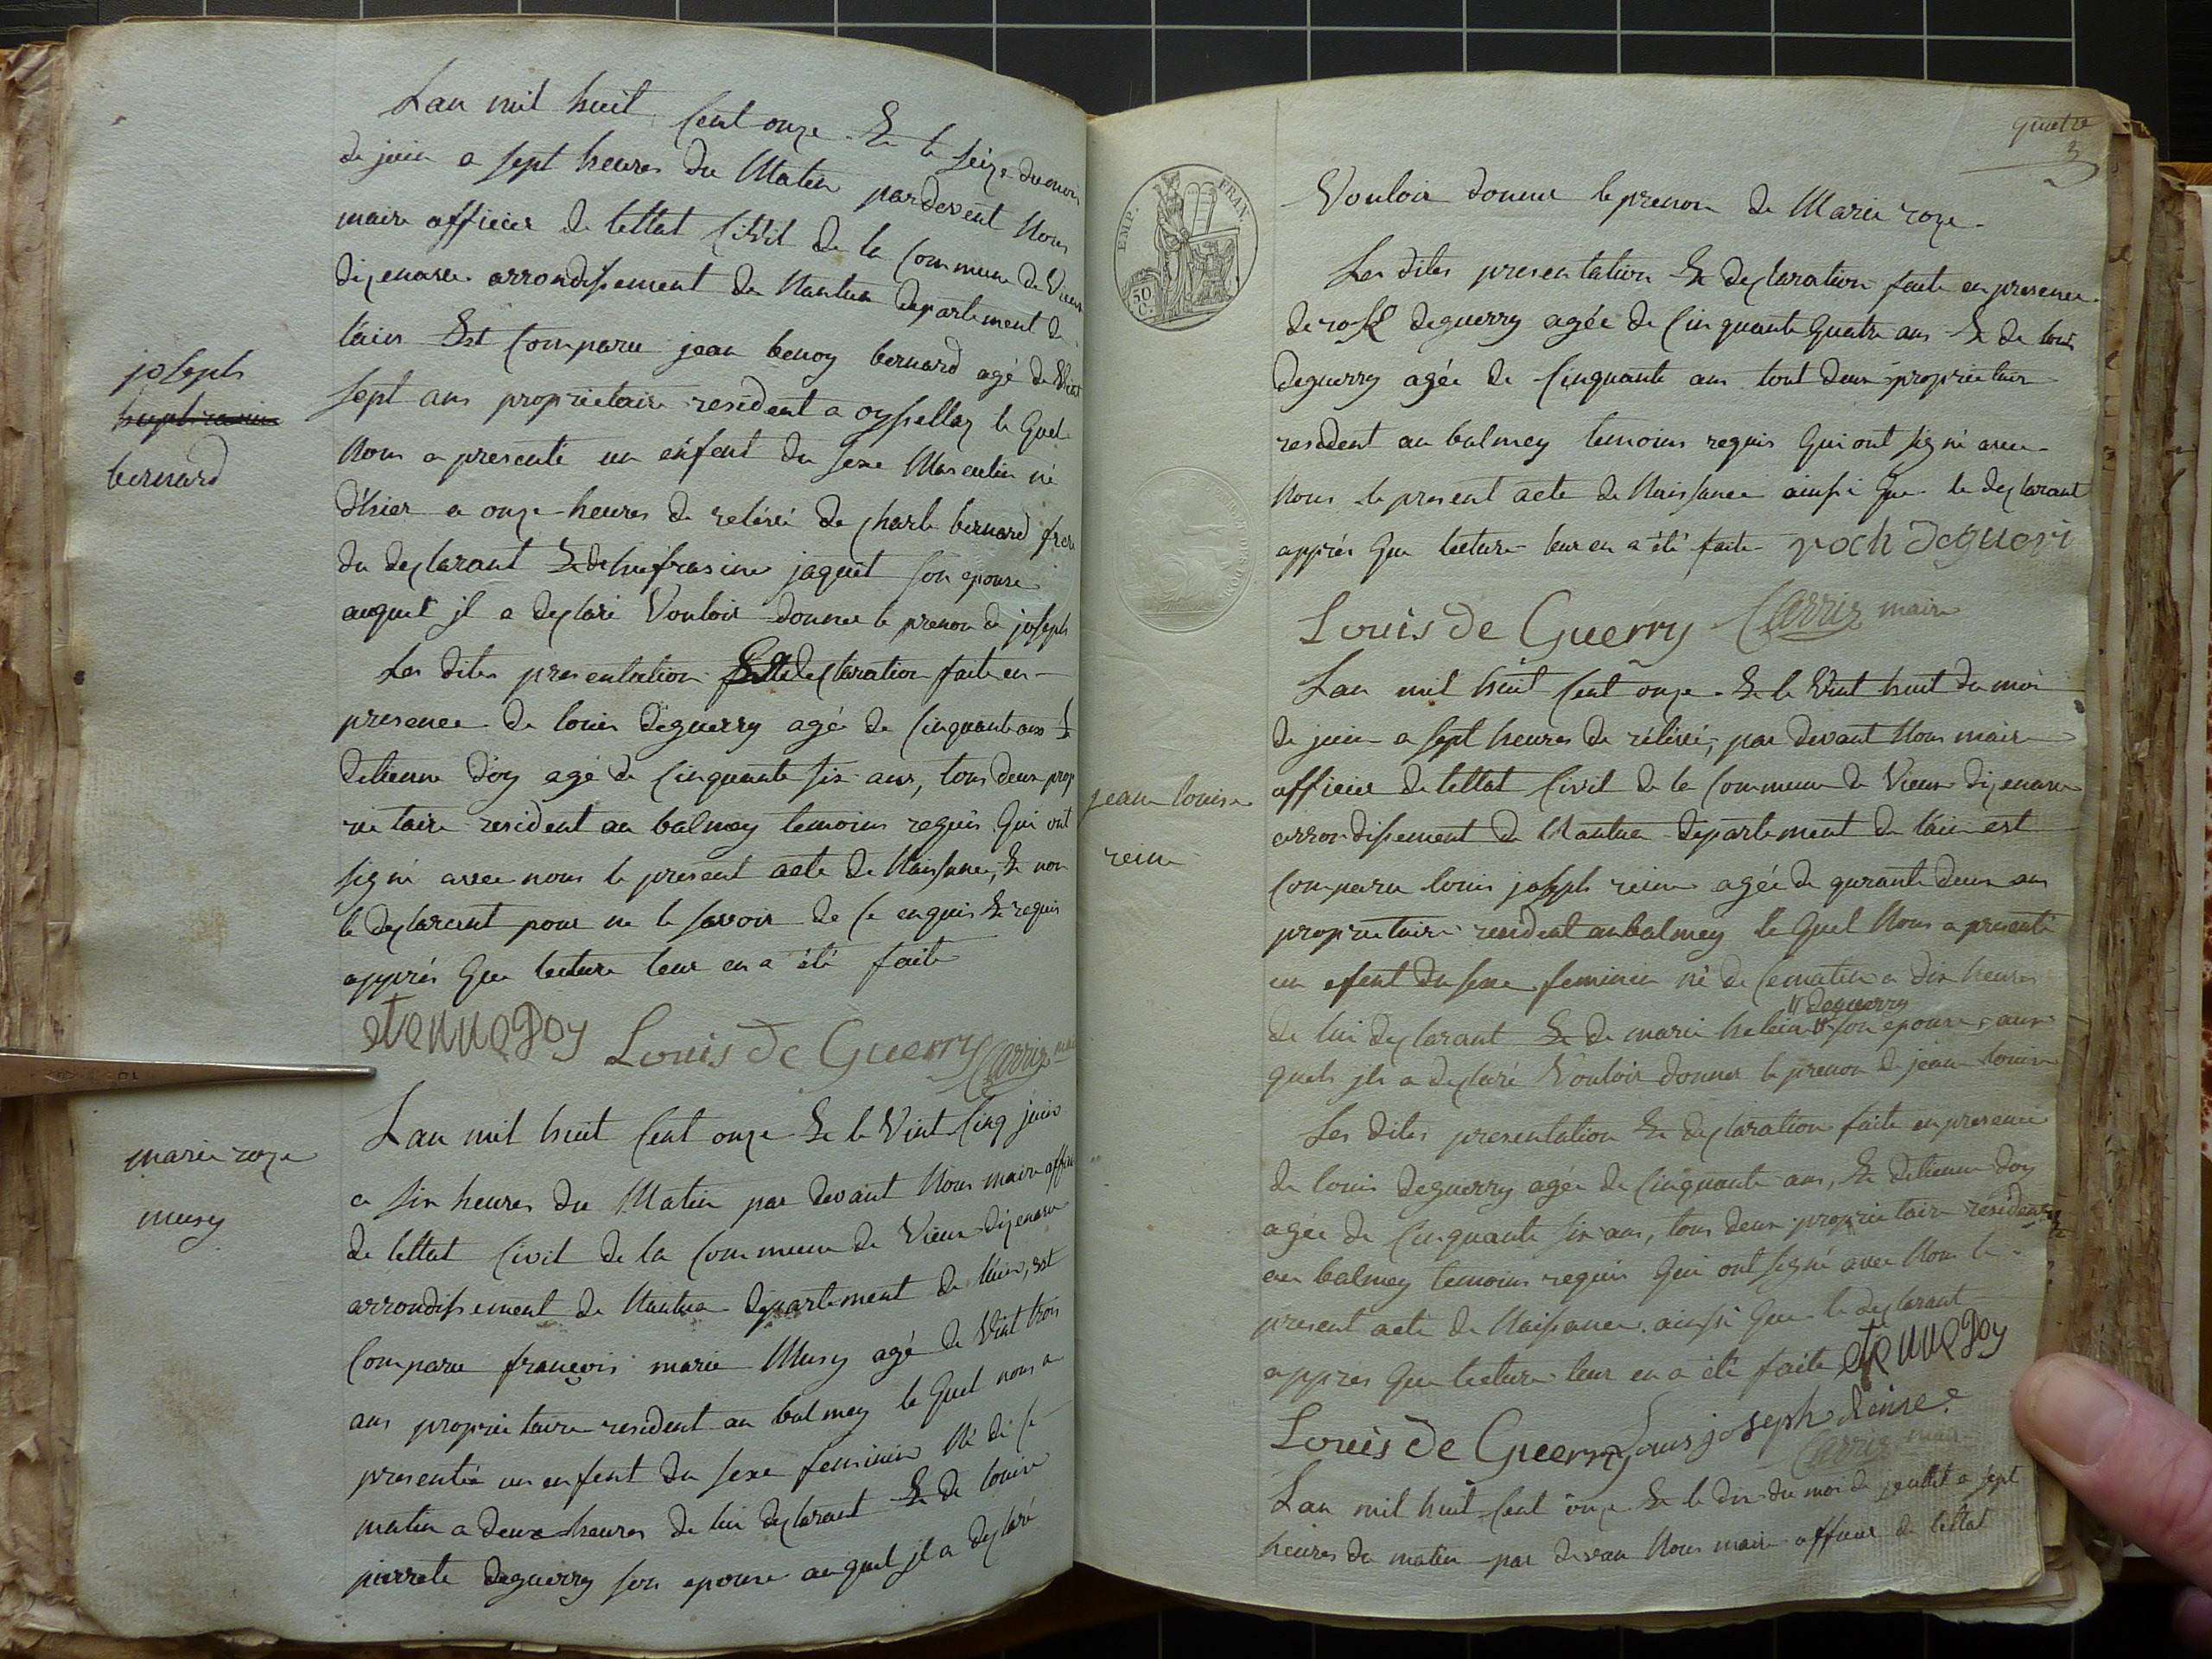 Lan mil huit Cent onze Et le seize du moi
de juin a sept heures du Matin pardevent Nous
maire officier de lettat Civil de la Commune de Vieux
dizenave arrondissement de Nantua departement de
lain Est Comparu jean benoy bernard agé de Vint
sept ans proprietaire resident a oyssellaz le Quel
Nous a presenté un enfent du sexe Masculin né
d'hier a onze heures de relévé de Charle bernard frere
du declarant Et de hufrasine jaquet son epouse
auquel jl a declaré Vouloir donner le prenon de joseph
joseph
bernard
Les dites presentation Et declaration faite en
presence de louis deguerry agé de Cinquante ans Et
detienne d'oy agé de Cinquante six ans, tous deux prop
rietaire resident au balmey temoins requis Qui ont
signé avec nous le present acte de Naissance, Et non
le declarent pour ne le savoir de Ce enquis Et requis
apprés Que lecture leur en a été faite
etenne Doy Louis de Guerry Carrier maire
marie roze
musy
Lan mil huit Cent onze Et le Vint Cinq juin
a six heures du Matin par devant Nous maire officier
de lettat Civil de la Commune de Vieux dizenave
arrondissement de Nantua departement de lain, est
Comparu françois marie Musy agé de Vint trois
ans proprietaire resident au balmey le Quel nous a
presentée un enfent du sexe feminin Né de Ce
matin a deux heures de lui declarant Et de louise
pierrete deguerry son epouse auquel jl a declaré
quatre
EMP. FRAN.
50 C.
Vouloir donner le prenon de Marie roze
Les dites presentation Et declaration faite en presence
de rock deguerry agée de Cinquante Quatre ans Et de louis
deguerry agée de Cinquante ans tout deux proprietaire
resident au balmey temoins requis Qui ont signé avec
Nous le present acte de Naissance ainssi Que le declarant
apprés Que lecture leur en a été faite roch deGueri
Louis de Guerry Carrier maire
jeane louise
reine
Lan mil huit Cent onze Et le Vint huit du moi
de juin a sept heures de rélévé, par devant Nous maire
officier de lettat Civil de la Commune de Vieux dizenave
arrondissement de Nantua departement de lain est
Comparu louis joseph reine agée de qurante deux ans
proprietaire resident au balmey le Quel Nous a presenté
un efent du sexe feminin né de Cematin a dix heures
deguerry
de lui declarant Et de marie helein son epouse aux
quels jls a declaré Vouloir donner le prenon de jeane louise
Les dites presentation Et declaration faite en presence
de louis deguerry agée de Cinquante ans, Et detienne doy
agée de Cinquante six ans, tous deux proprietaire résident
au balmey temoins requis Qui ont signé avec Nous le
present acte de Naissance ainssi Que le declarant
appres Que lecture leur en a été faite etenne Doy
Louis de Guerry Louis joseph Reine
Carrier maire
Lan mil huit Cent onze Et le dix du moi de jeullet a sept
heures du matin par devan Nous maire officier de lettat